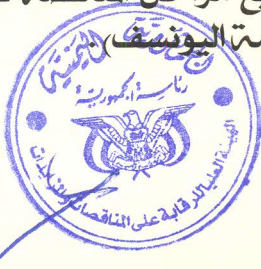 اليونسف).
الجمهورية اليمنية
رئاسة الجمهورية
الهيئة العليا للرقابة على المناقصات والمزايدات